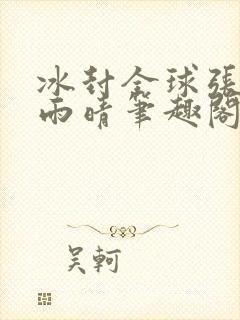 冰封全球張
雨晴筆趣閣
吴軻